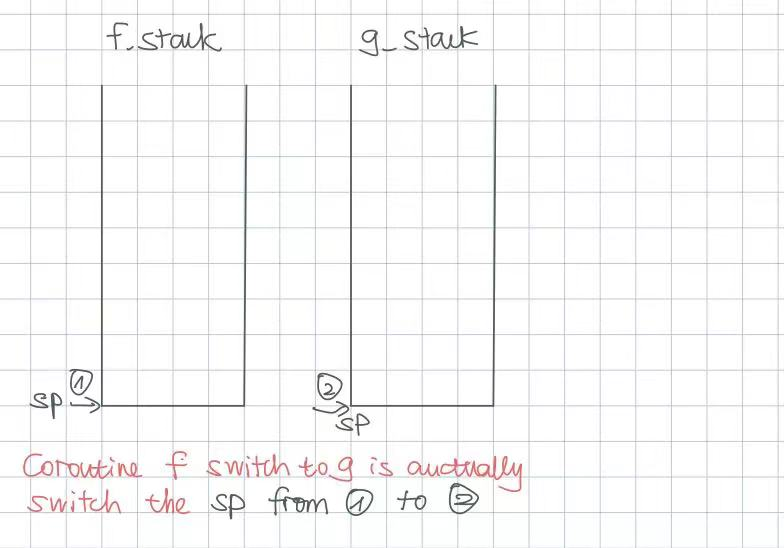 f_stack
g_stack
①
sp →
②
→
sp
Coroutine f switch to g is auctually
switch the sp from ① to ②